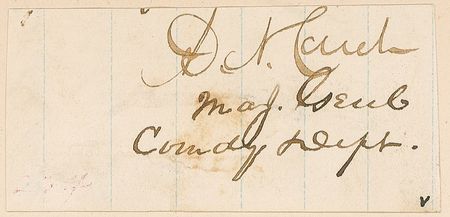 D. N. Couch
Maj. Genl
Comdg Dept.
v